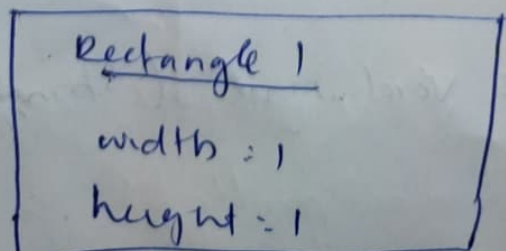 Rectangle 1
width : 1
height : 1